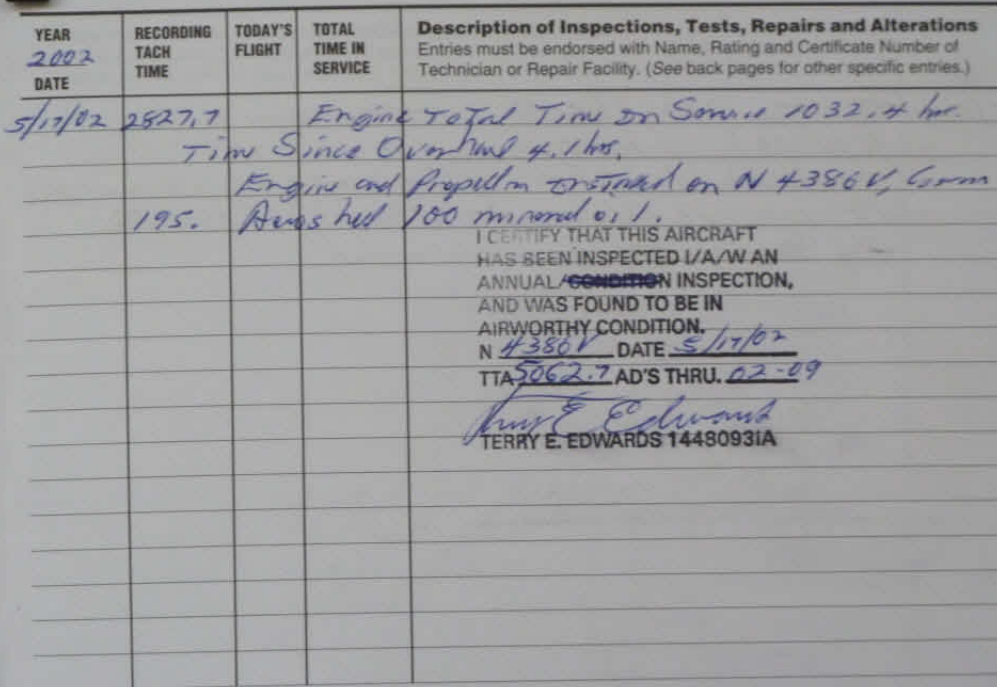 YEAR 2002 DATE
RECORDING TACH TIME
TODAY'S FLIGHT
TOTAL TIME IN SERVICE
Description of Inspections, Tests, Repairs and Alterations
Entries must be endorsed with Name, Rating and Certificate Number of
Technician or Repair Facility. (See back pages for other specific entries.)
5/17/02 2827.7 Engine Total Time In Service 1032.4 hrs.
Time Since Overhaul 4.1 hrs.
Engine and Propeller installed on N 4386V,
195. Aeroshell 100 mineral oil.
I CERTIFY THAT THIS AIRCRAFT
HAS BEEN INSPECTED I/A/W AN
ANNUAL/CONDITION INSPECTION,
AND WAS FOUND TO BE IN
AIRWORTHY CONDITION.
N 4386V DATE 5/17/02
TTA 5062.7 AD'S THRU. 02-09
Terry E Edwards
TERRY E. EDWARDS 1448093IA